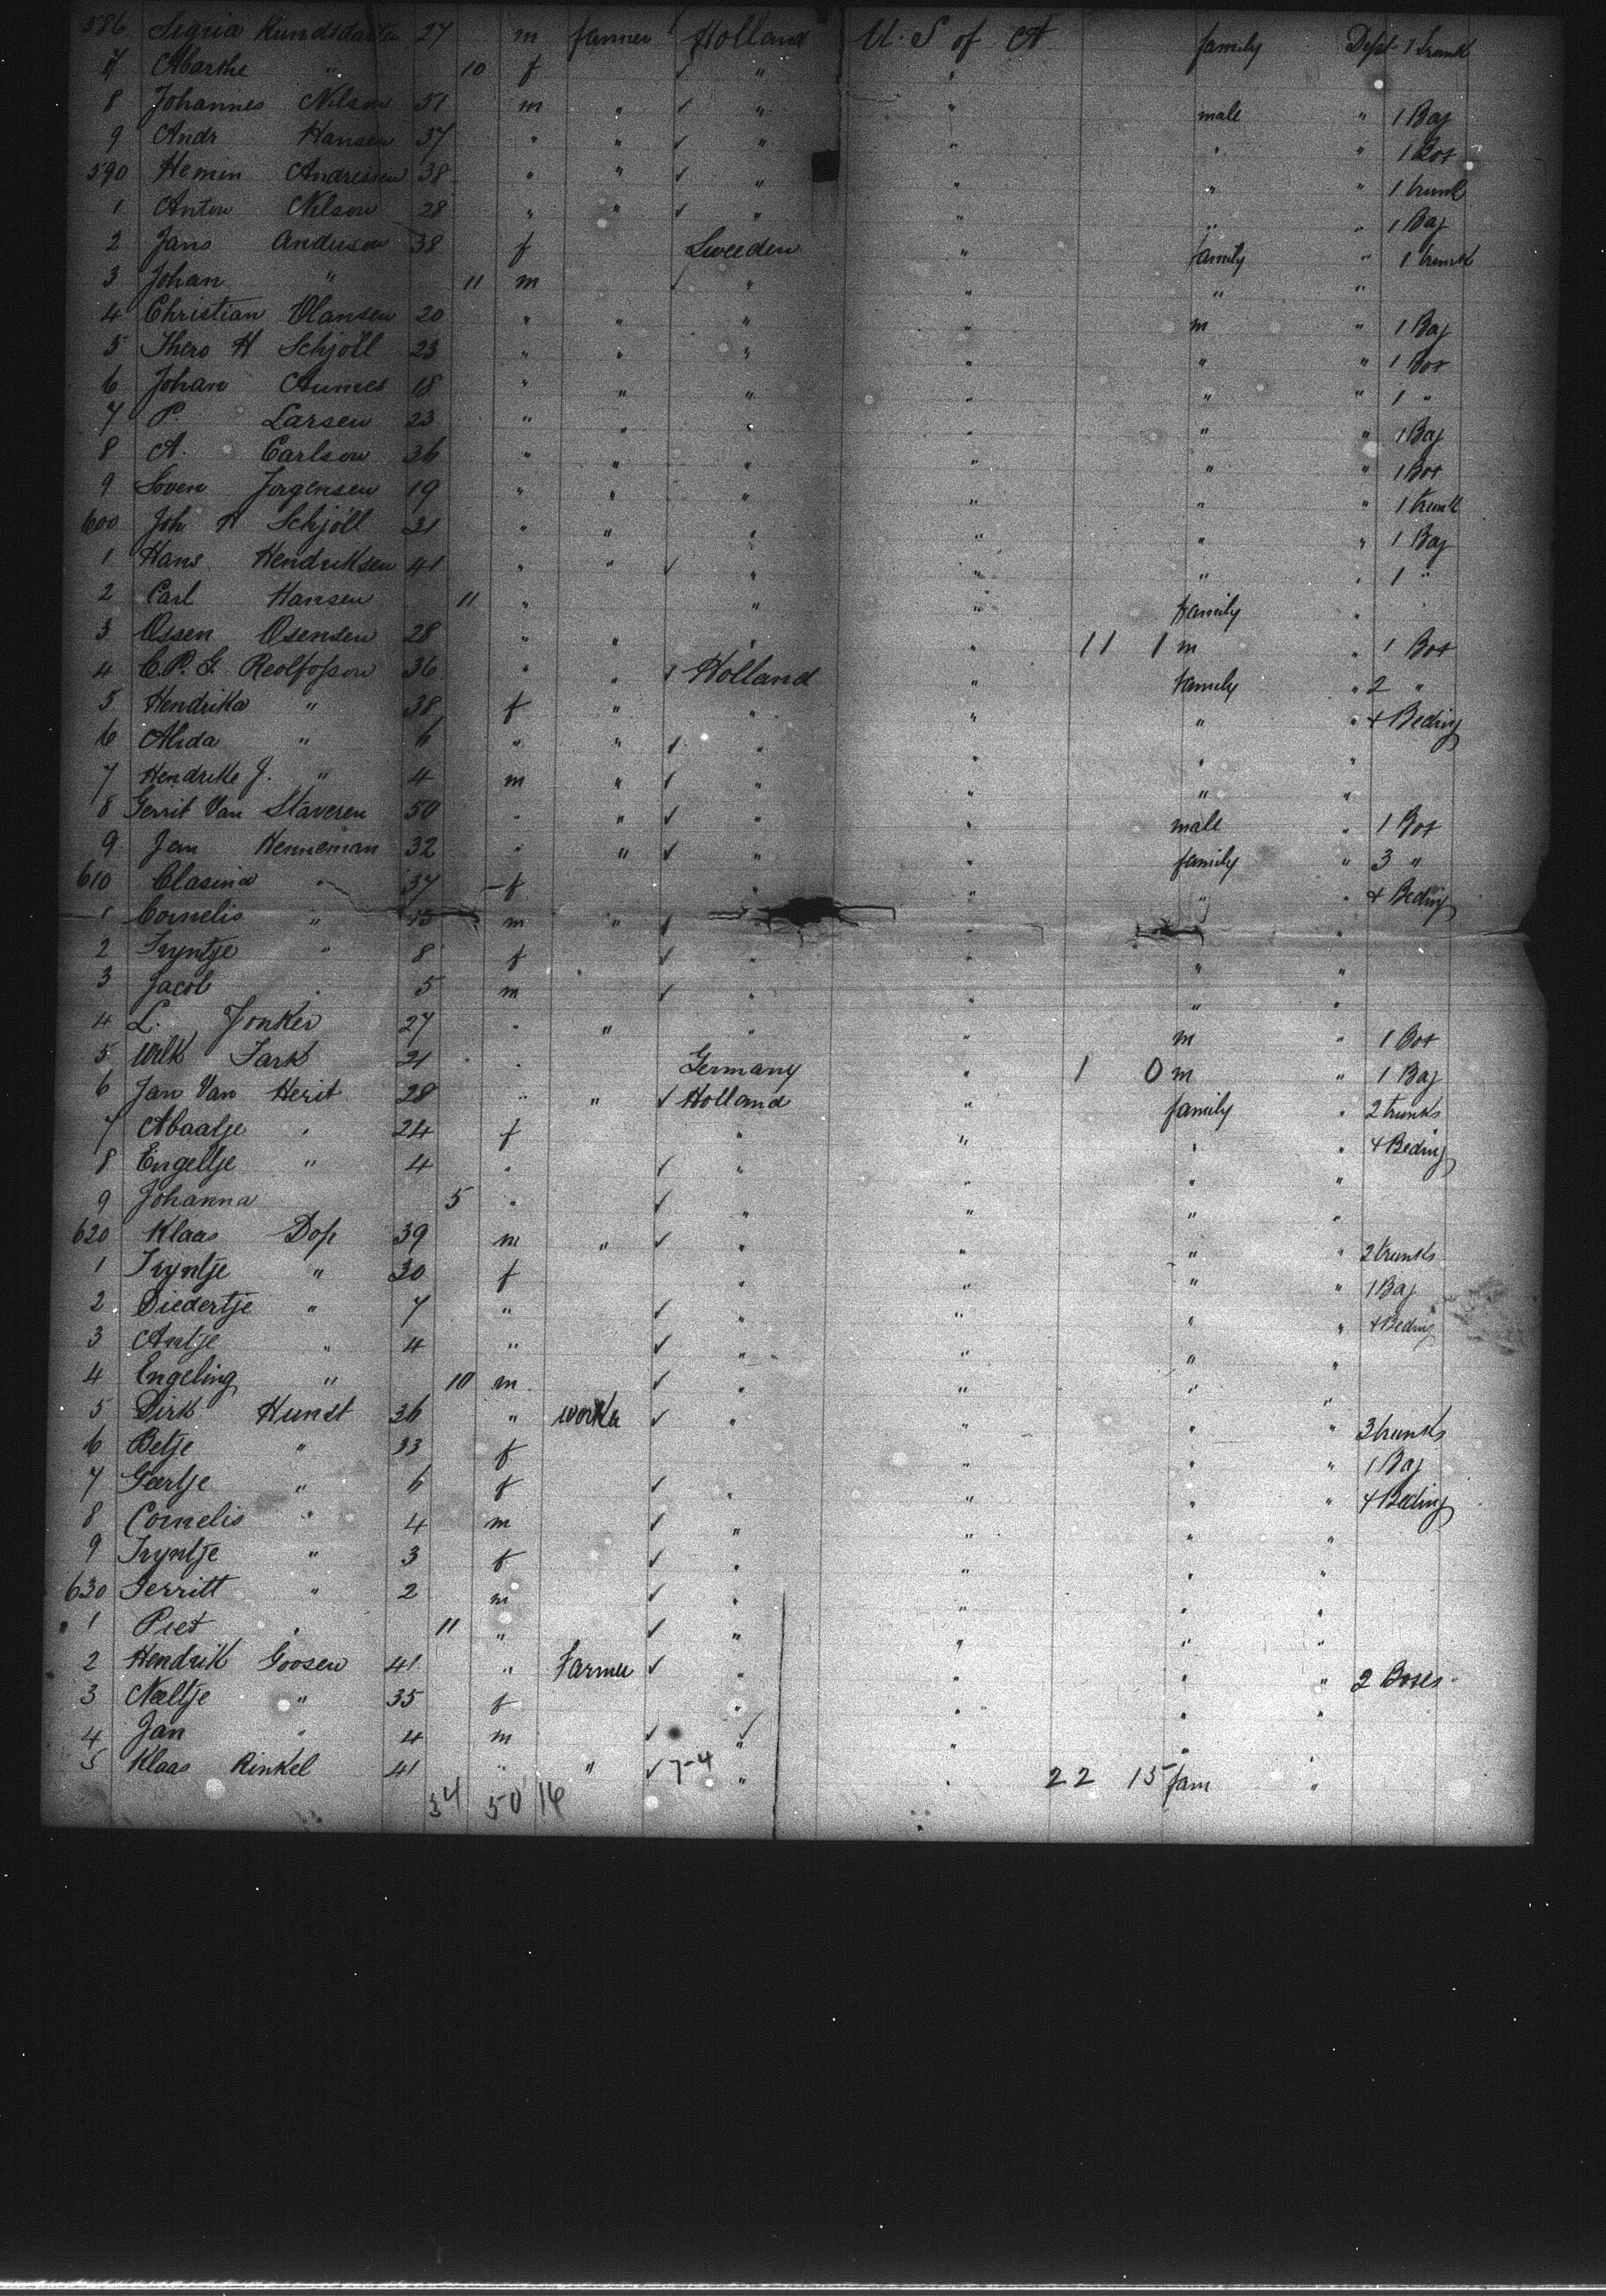 586 Sigria Kundsdatter 27 m farmer Holland U. S of A family Dept 1 Trunk
7 " 10 f ✓ " "
8 Johannes Nilson 51 m " ✓ " " male " 1 Bag
9 Andr Hansen 37 " " ✓ " " " " 1 Box
590 Hemin Andresen 38 " " ✓ " " " " 1 trunk
1 Anton Nilson 28 " " ✓ " " " " 1 Bag
2 Jans Anderson 38 f Sweeden " family " 1 trunk
3 Johan " 11 m ✓ " " " "
4 Christian Olansen 20 " " " " m " 1 Bag
5 Thero H Schjoll 23 " " " " " " 1 Box
6 Johan Aumes 18 " " " " " " 1 "
7 P. Larsen 23 " " " " " " 1 Bag
8 A. Carlson 36 " " " " " " 1 Box
9 Soven Jorgensen 19 " " " " " " 1 trunk
600 Joh H Schjoll 31 " " " " " " 1 Bag
1 Hans Hendriksen 41 " " ✓ " " " " 1 "
2 Carl Hansen 11 " " " family "
3 Ossen Osensen 28 " " " " 11 1 m " 1 Box
4 C. P. G. 36 " " ✓ Holland " family " 2 "
5 Hendrika " 38 f " " " " " + Beding
6 Alida " 6 " " ✓ " " " "
7 Hendrike J. " 4 m " ✓ " " " "
8 Gerrit Van Staveren 50 " " ✓ " " male " 1 Box
9 Jan Henneman 32 " " ✓ " " family " 3 "
610 Clasina " 37 f " " " " + Beding
1 Cornelis " 13 m " ✓ " " "
2 Tryntje " 8 f " ✓ " " " "
3 Jacob " 5 m ✓ " " " "
4 L. Jonker 27 " " " " m " 1 Box
5 Wilk Tark 21 " Germany " 1 0 m " 1 Bag
6 Jan Van Herit 28 " " ✓ Holland " family " 2 trunks
7 Abaatje " 24 f " " " " + Beding
8 Engeltje " 4 " ✓ " " " "
9 Johanna 5 " ✓ " " " "
620 Klaas Dop 39 m " ✓ " " " " 2 trunks
1 Tryntje " 30 f " " " " 1 Bag
2 Diedertje " 7 " ✓ " " " " + Beding
3 Antje " 4 " ✓ " " " "
4 Engeling " 10 m ✓ " " " "
5 Dirk Hunst 36 " worker ✓ " " " " 3 trunks
6 Betje " 33 f " " " 1 Bag
7 Geertje " 6 f ✓ " " " " + Beding
8 Cornelis " 4 m ✓ " " " "
9 Tryntje " 3 f ✓ " " " "
630 Gerritt " 2 m ✓ " " " "
1 Piet " 11 " ✓ " " " "
2 Hendrik Goosen 41 " Farmer ✓ " " " " 2 Boxes
3 Neeltje " 35 f " " " "
4 Jan " 4 m ✓ " ✓ "
5 Klaas Rinkel 41 " " ✓ 7-4 " " 22 15 fam "
34 50 16